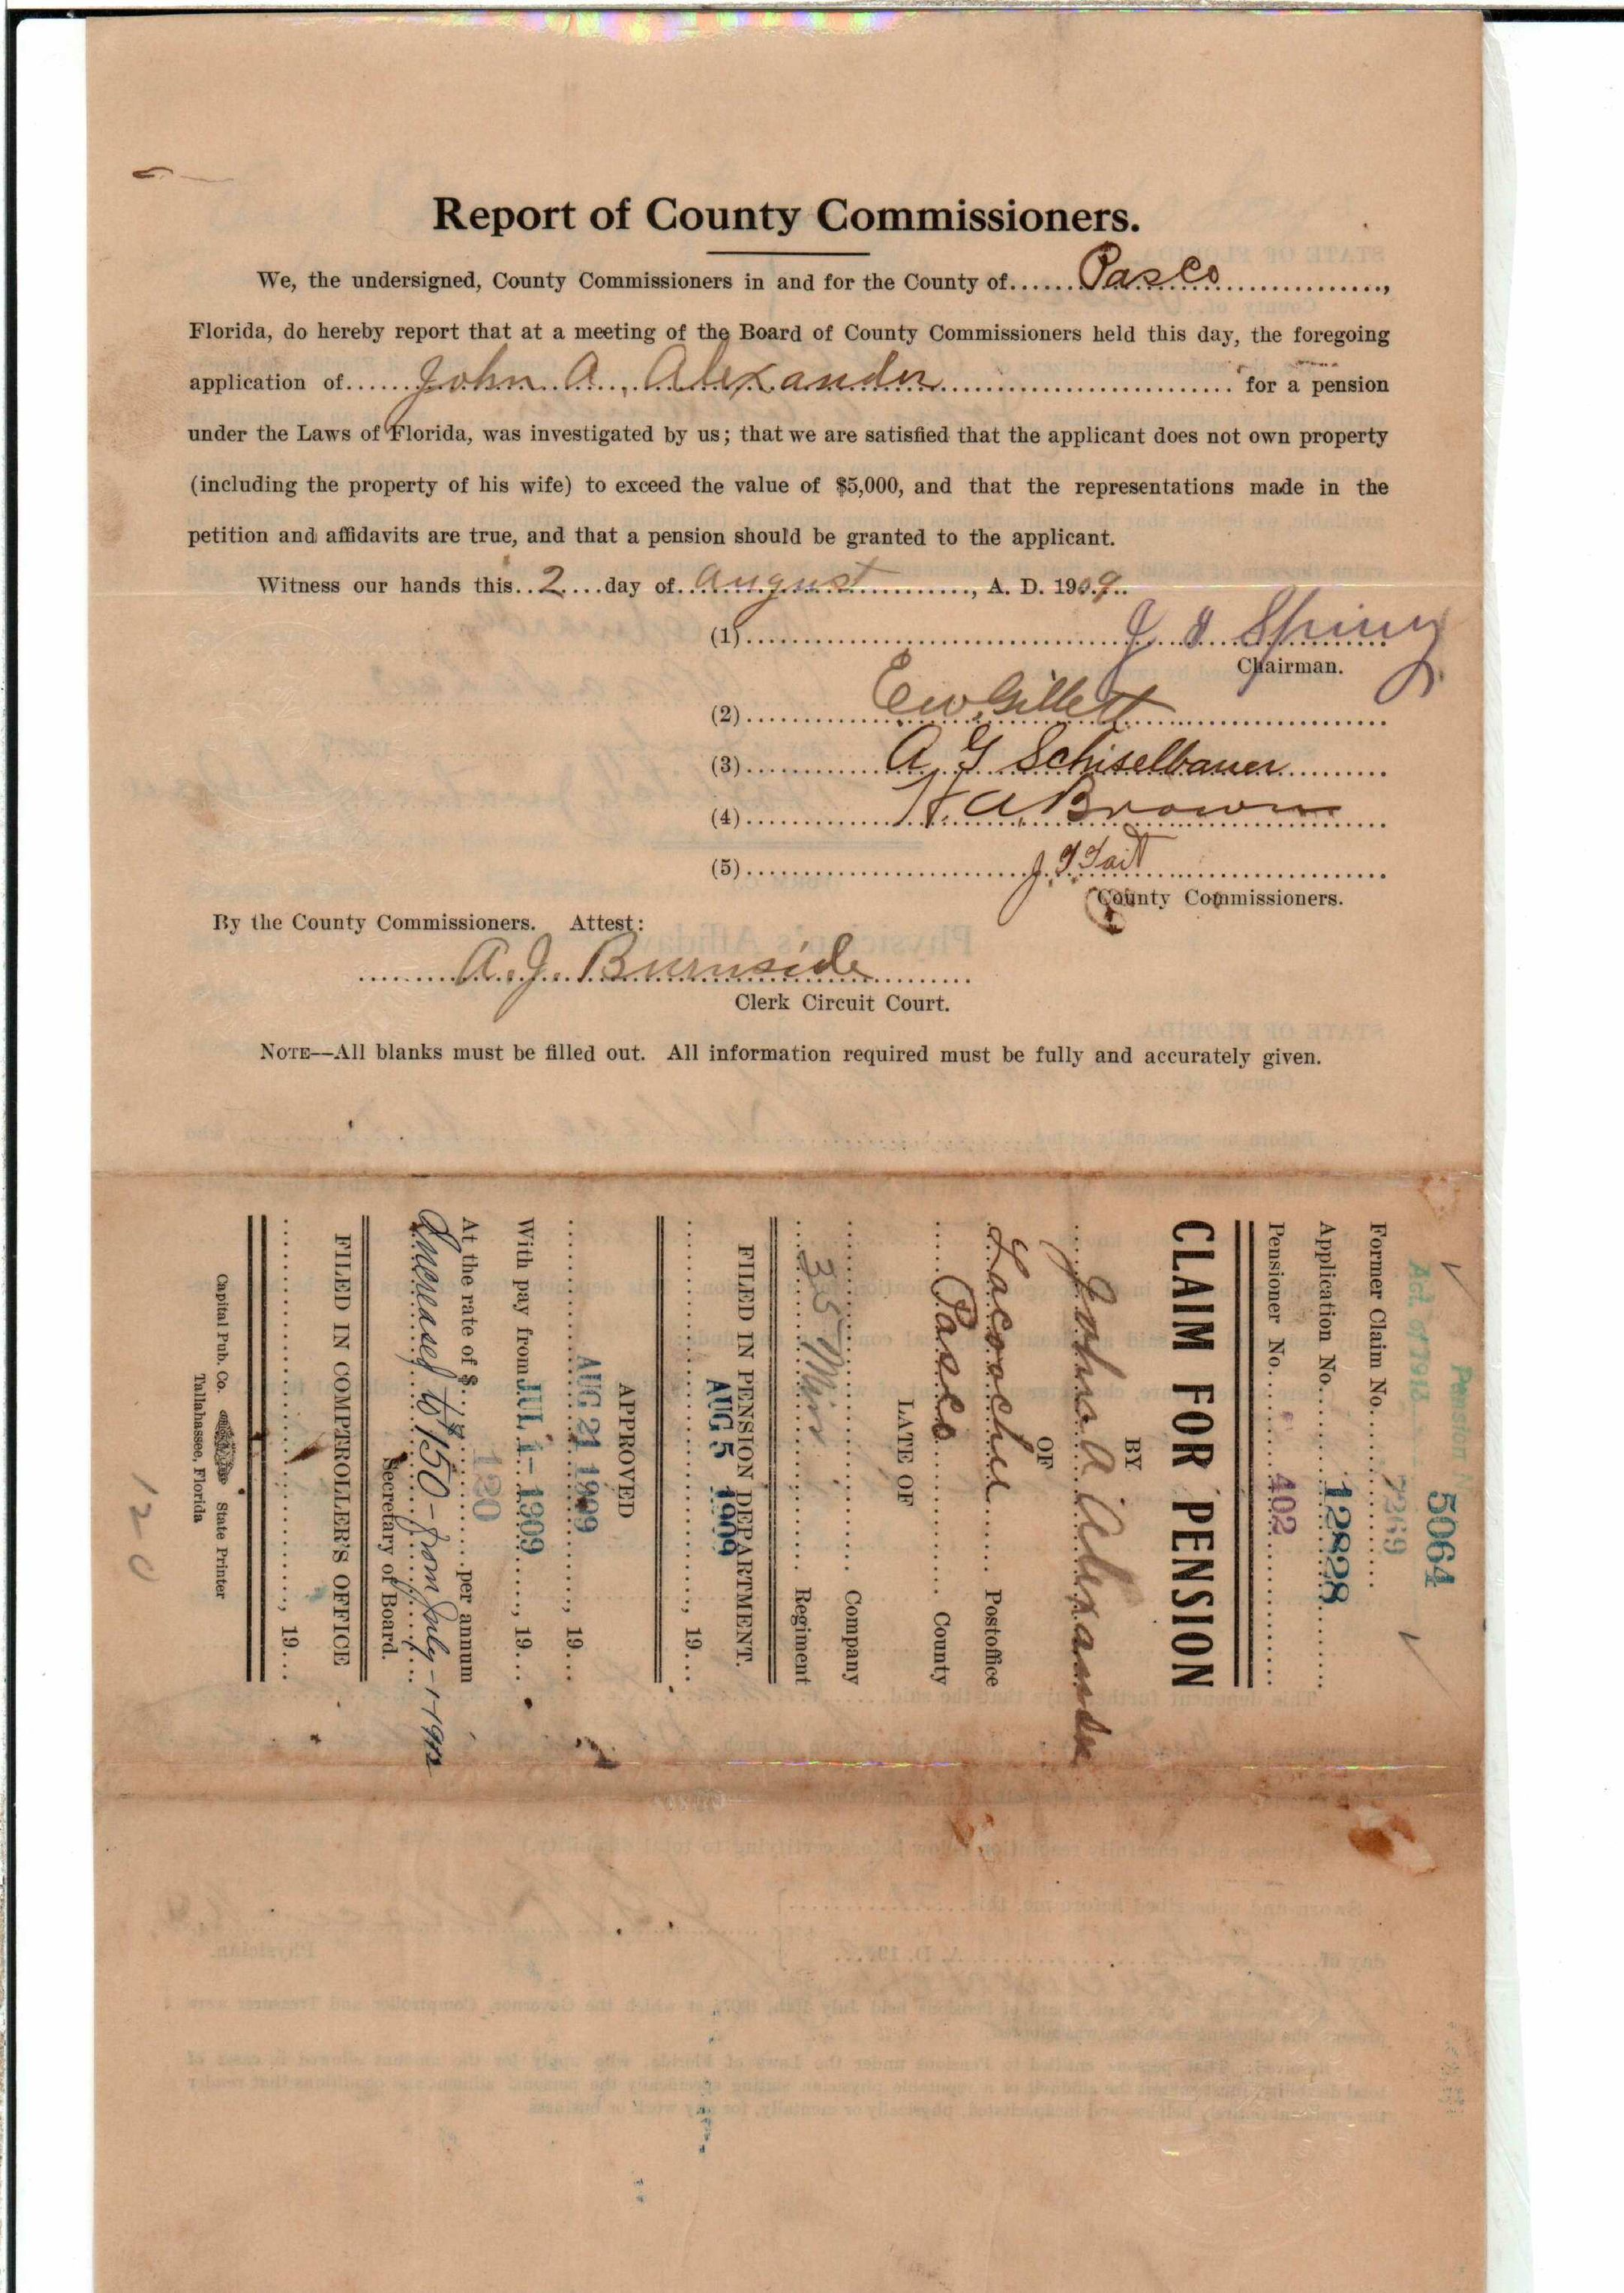 Report of County Commissioners.
We, the undersigned, County Commissioners in and for the County of......Pasco................,
Florida, do hereby report that at a meeting of the Board of County Commissioners held this day, the foregoing
application of......John A. Alexander........................... for a pension
under the Laws of Florida, was investigated by us; that we are satisfied that the applicant does not own property
(including the property of his wife) to exceed the value of $5,000, and that the representations made in the
petition and affidavits are true, and that a pension should be granted to the applicant.
Witness our hands this..2....day of..August............, A. D. 1909..
(1)
Chairman.
(2)............E W Gillett....................
(3)............A G Schiselbauer..........
(4)............H. A Brown......
(5)............J. T Tait....................
County Commissioners.
By the County Commissioners. Attest:
.........A. J. Burnside.........
Clerk Circuit Court.
NOTE—All blanks must be filled out. All information required must be fully and accurately given.
Pension
5064
Act of 1913
Former Claim No..........7369......
Application No..........12828..........
Pensioner No..........402..........
CLAIM FOR PENSION
BY
John A Alexander
OF
Lacoochee..... Postoffice
.....Pasco............... County
LATE OF
.............................. Company
...35 Miss............... Regiment
FILED IN PENSION DEPARTMENT.
AUG 5 1909
.............................., 19...
APPROVED
AUG 21 1909........, 19...
With pay from JUL 1- 1909......, 19...
At the rate of $....120........per annum
Increased to $150- from July-1-
Secretary of Board.
FILED IN COMPTROLLER'S OFFICE
.............................., 19...
Capital Pub. Co. State Printer
Tallahassee, Florida
120